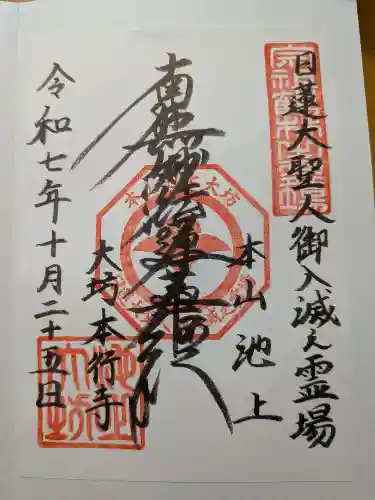 日蓮大聖人御入滅之霊場
本山池上
南無妙法蓮華経
大坊本行寺
令和七年十月二十五日